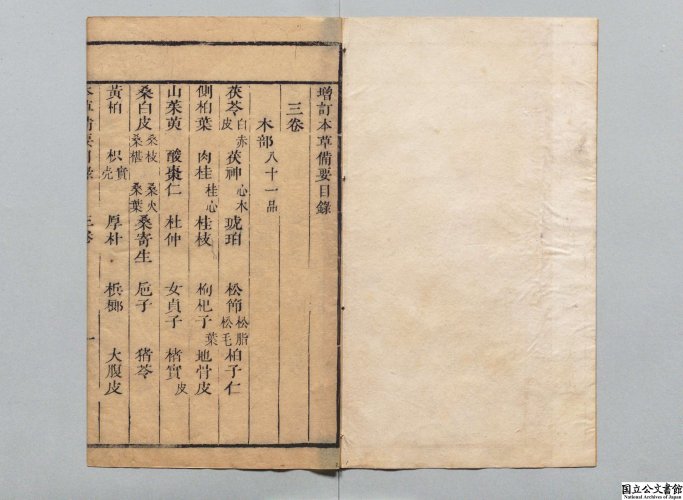 增訂本草備要目錄
三卷
木部八十一品
茯苓 白 赤 皮 茯神 心木 琥珀 松節 松脂 松毛 柏子仁
側柏葉 肉桂 桂心 桂枝 枸杞子 葉 地骨皮
山茱萸 酸棗仁 杜仲 女貞子 楮實 皮
桑白皮 桑枝 桑椹 桑火 桑葉 桑寄生 梔子 猪苓
黃柏 枳實 壳 厚朴 梹榔 大腹皮
本草備要目錄 三卷 一
国立公文書館
National Archives of Japan